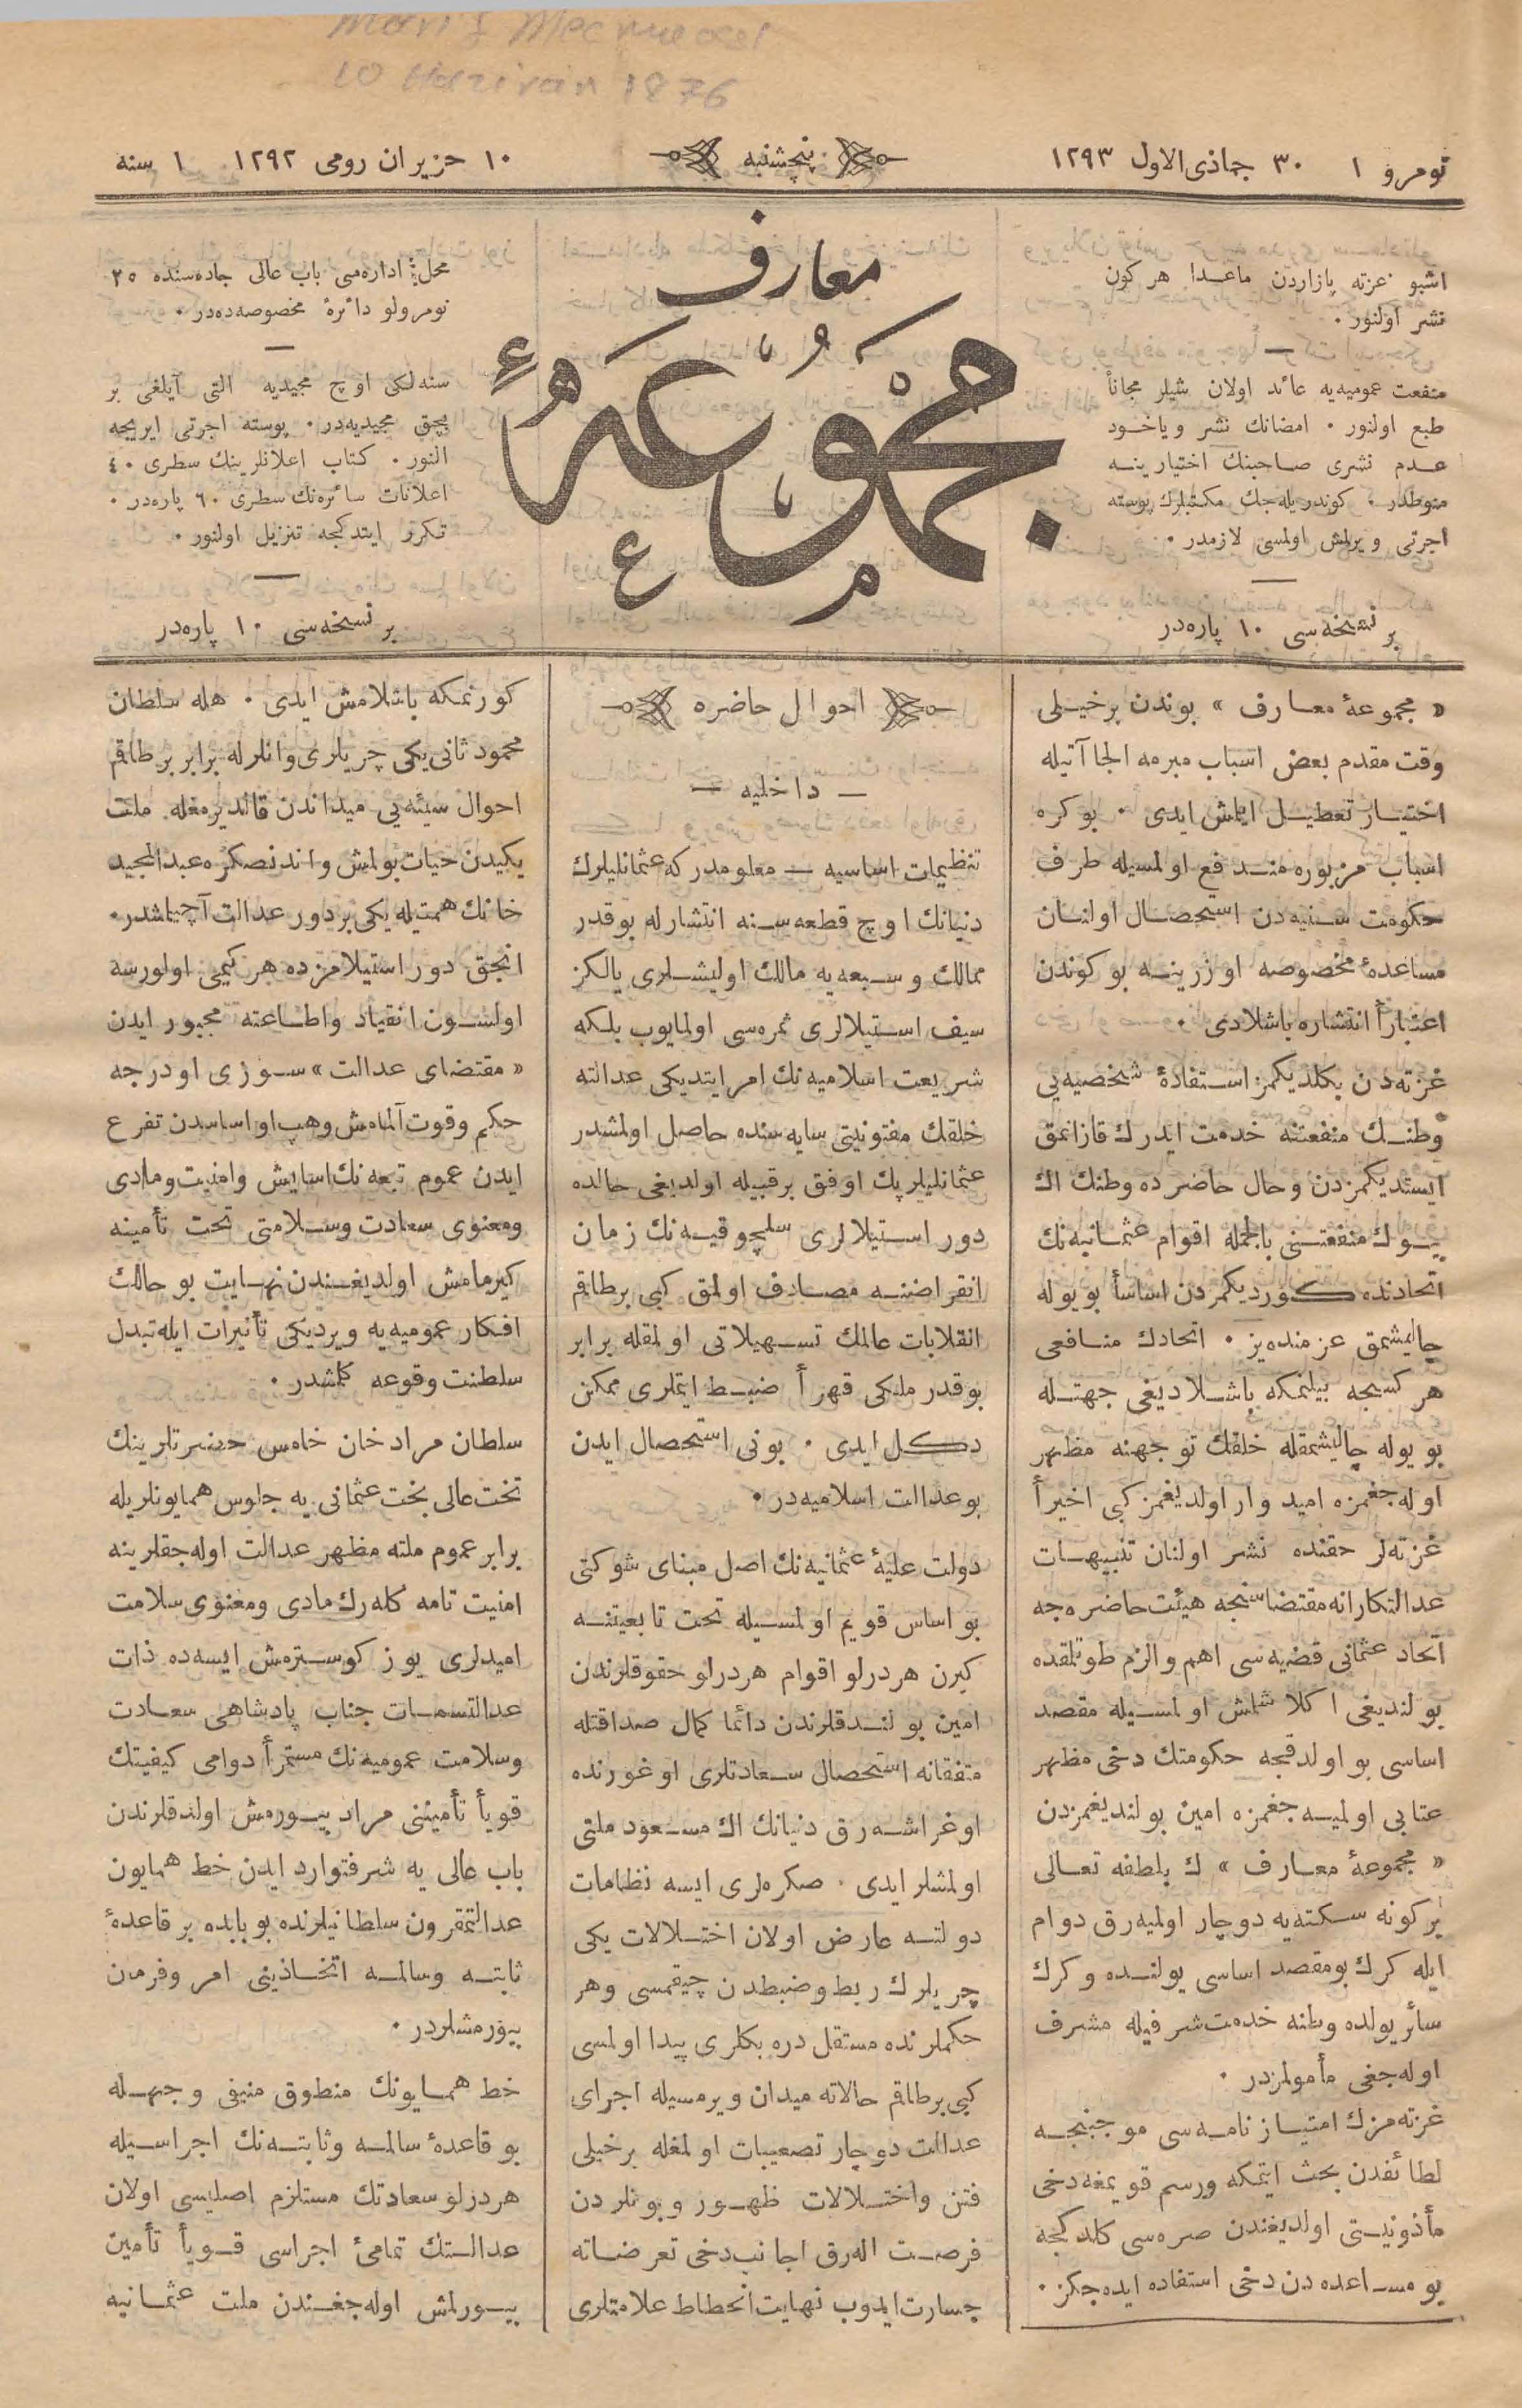 Mari f Mecmuasi
10 Haziran 1876
نومرو ١
٣٠ جماذی‌الاول ١٢٩٣
پنچشنبه
١٠ حزیران رومی ١٢٩٢
١ سنه
اشبو غزته پازاردن ماعدا هر كون
نشر اولنور ٠
منفعت عمومیه‌یه عائد اولان شیلر مجاناً
طبع اولنور ٠ امضانك نشر ویاخود
عدم نشری صاحبنك اختیارینه
منوطدر ٠ كوندریله‌جك مكتبلرك پوسته
اجرتی ویرلمش اولمسی لازمدر ٠
بر نسخه‌سی ١٠ پاره‌در
معارف
مجموعهٔ
محل اداره‌سی باب عالی جاده‌سنده ٢٥
نومرولو دائرهٔ مخصوصه‌ده‌در ٠
سنه‌لكی اوچ مجیدیه التی آیلغی بر
بچق مجیدیه‌در ٠ پوسته اجرتی ایریجه
النور ٠ كتاب اعلانلرینك سطری ٤٠
اعلانات سائره‌نك سطری ٦٠ پاره‌در ٠
تكرر ایتدكجه تنزیل اولنور ٠
بر نسخه‌سی ١٠ پاره‌در
« مجموعهٔ معارف » بوندن برخیلی
وقت مقدم بعض اسباب مبرمه الجاآتیله
اختیار تعطیل ایلمش ایدی ٠ بو كره
اسباب مزبوره مندفع اولمسیله طرف
حكومت سنیه‌دن استحصال اولنان
مساعدهٔ مخصوصه اوزرینه بو كوندن
اعتباراً انتشاره باشلادی ٠
غزته‌دن بكلدیكمز استفادهٔ شخصیه‌یی
وطنك منفعتنه خدمت ایدرك قازانمق
ایستدیكمزدن وحال حاضرده وطنك اك
بیوك منفعتنی بالجمله اقوام عثمانیه‌نك
اتحادنده كوردیكمزدن اساساً بو یوله
چالیشمق عزمنده‌یز ٠ اتحادك منافعی
هر كسجه بیلنمكه باشلادیغی جهتله
بو یوله چالیشمقله خلقك توجهنه مظهر
اوله‌جغمزه امیدوار اولدیغمز كبی اخیراً
غزته‌لر حقنده نشر اولنان تنبیهات
عدالتكارانه مقتضاسنجه هیئت حاضره‌جه
اتحاد عثمانی قضیه‌سی اهم والزم طوتلقده
بولندیغی اكلاشلمش اولمسیله مقصد
اساسی بو اولدقجه حكومتك دخی مظهر
عتابی اولمیه‌جغمزه امین بولندیغمزدن
« مجموعهٔ معارف » ك بلطفه تعالی
بر كونه سكته‌یه دوچار اولمیه‌رق دوام
ایله كرك بومقصد اساسی یولنده وكرك
سائر یولده وطنه خدمت شرفیله مشرف
اوله‌جغی مأمولمزدر ٠
غزته‌مزك امتیازنامه‌سی موجبنجه
لطائفدن بحث ایتمكه ورسم قویمغه دخی
مأذونیتی اولدیغندن صره‌سی كلدكجه
بو مساعده‌دن دخی استفاده ایده‌جكز ٠
احوال حاضره
— داخلیه —
تنظیمات اساسیه — معلومدركه عثمانلیلرك
دنیانك اوچ قطعه‌سنه انتشارله بوقدر
ممالك وسیعه‌یه مالك اولیشلری یالكز
سیف استیلالری ثمره‌سی اولمایوب بلكه
شریعت اسلامیه‌نك امر ایتدیكی عدالته
خلقك مفتونیتی سایه‌سنده حاصل اولمشدر
عثمانلیلر پك اوفق برقبیله اولدیغی حالده
دور استیلالری سلچوقیه‌نك زمان
انقراضنه مصادف اولمق كبی برطاقم
انقلابات عالمك تسهیلاتی اولمقله برابر
بوقدر ملكی قهراً ضبط ایتملری ممكن
دكل ایدی ٠ بونی استحصال ایدن
بو عدالت اسلامیه‌در ٠
دولت علیهٔ عثمانیه‌نك اصل مبنای شوكتی
بو اساس قویم اولمسیله تحت تابعیتنه
كیرن هردرلو اقوام هردرلو حقوقلرندن
امین بولندقلرندن دائما كمال صداقتله
متفقانه استحصال سعادتلری اوغورنده
اوغراشه‌رق دنیانك اك مسعود ملتی
اولمشلر ایدی ٠ صكره‌لری ایسه نظامات
دولته عارض اولان اختلالات یكی
چریلرك ربط وضبطدن چیقمسی وهر
حكملرنده مستقل دره بكلری پیدا اولمسی
كبی برطاقم حالاته میدان ویرمسیله اجرای
عدالت دوچار تصعیبات اولمغله برخیلی
فتن واختلالات ظهور وبونلردن
فرصت اله‌رق اجانب‌دخی تعرضاته
جسارت ایدوب نهایت انحطاط علامتلری
كورنمكه باشلامش ایدی ٠ هله سلطان
محمود ثانی یكی چریلری وانلرله برابر برطاقم
احوال سیئه‌یی میداندن قالدیرمغله ملت
یكیدن حیات بولمش واندنصكره عبدالمجید
خانك همتیله یكی بر دور عدالت آچیلمشدر٠
انجق دور استیلامزده هر كیمی اولورسه
اولسون انقیاد واطاعته مجبور ایدن
« مقتضای عدالت » سوزی اودرجه
حكم وقوت آلمامش وهپ او اساسدن تفرع
ایدن عموم تبعه‌نك اسایش وامنیت ومادی
ومعنوی سعادت وسلامتی تحت تأمینه
كیرمامش اولدیغندن نهایت بو حالك
افكار عمومیه‌یه ویردیكی تأثیرات ایله تبدل
سلطنت وقوعه كلمشدر ٠
سلطان مراد خان خامس حضرتلرینك
تخت عالی بخت عثمانی‌یه جلوس همایونلریله
برابر عموم ملته مظهر عدالت اوله‌جقلرینه
امنیت تامه كله‌رك مادی ومعنوی سلامت
امیدلری یوز كوسترمش ایسه‌ده ذات
عدالتسمات جناب پادشاهی سعادت
وسلامت عمومیه‌نك مستمراً دوامی كیفیتك
قویاً تأمیننی مراد بیورمش اولدقلرندن
باب عالی‌یه شرفتوارد ایدن خط همایون
عدالتمقرون سلطانیلرنده بوبابده بر قاعدهٔ
ثابته وسالمه اتخاذینی امر وفرمان
بیورمشلردر ٠
خط همایونك منطوق منیفی وجهله
بو قاعدهٔ سالمه وثابته‌نك اجراسیله
هردرلو سعادتك مستلزم اصلیسی اولان
عدالتك تمامئ اجراسی قویاً تأمین
بیورلمش اوله‌جغندن ملت عثمانیه